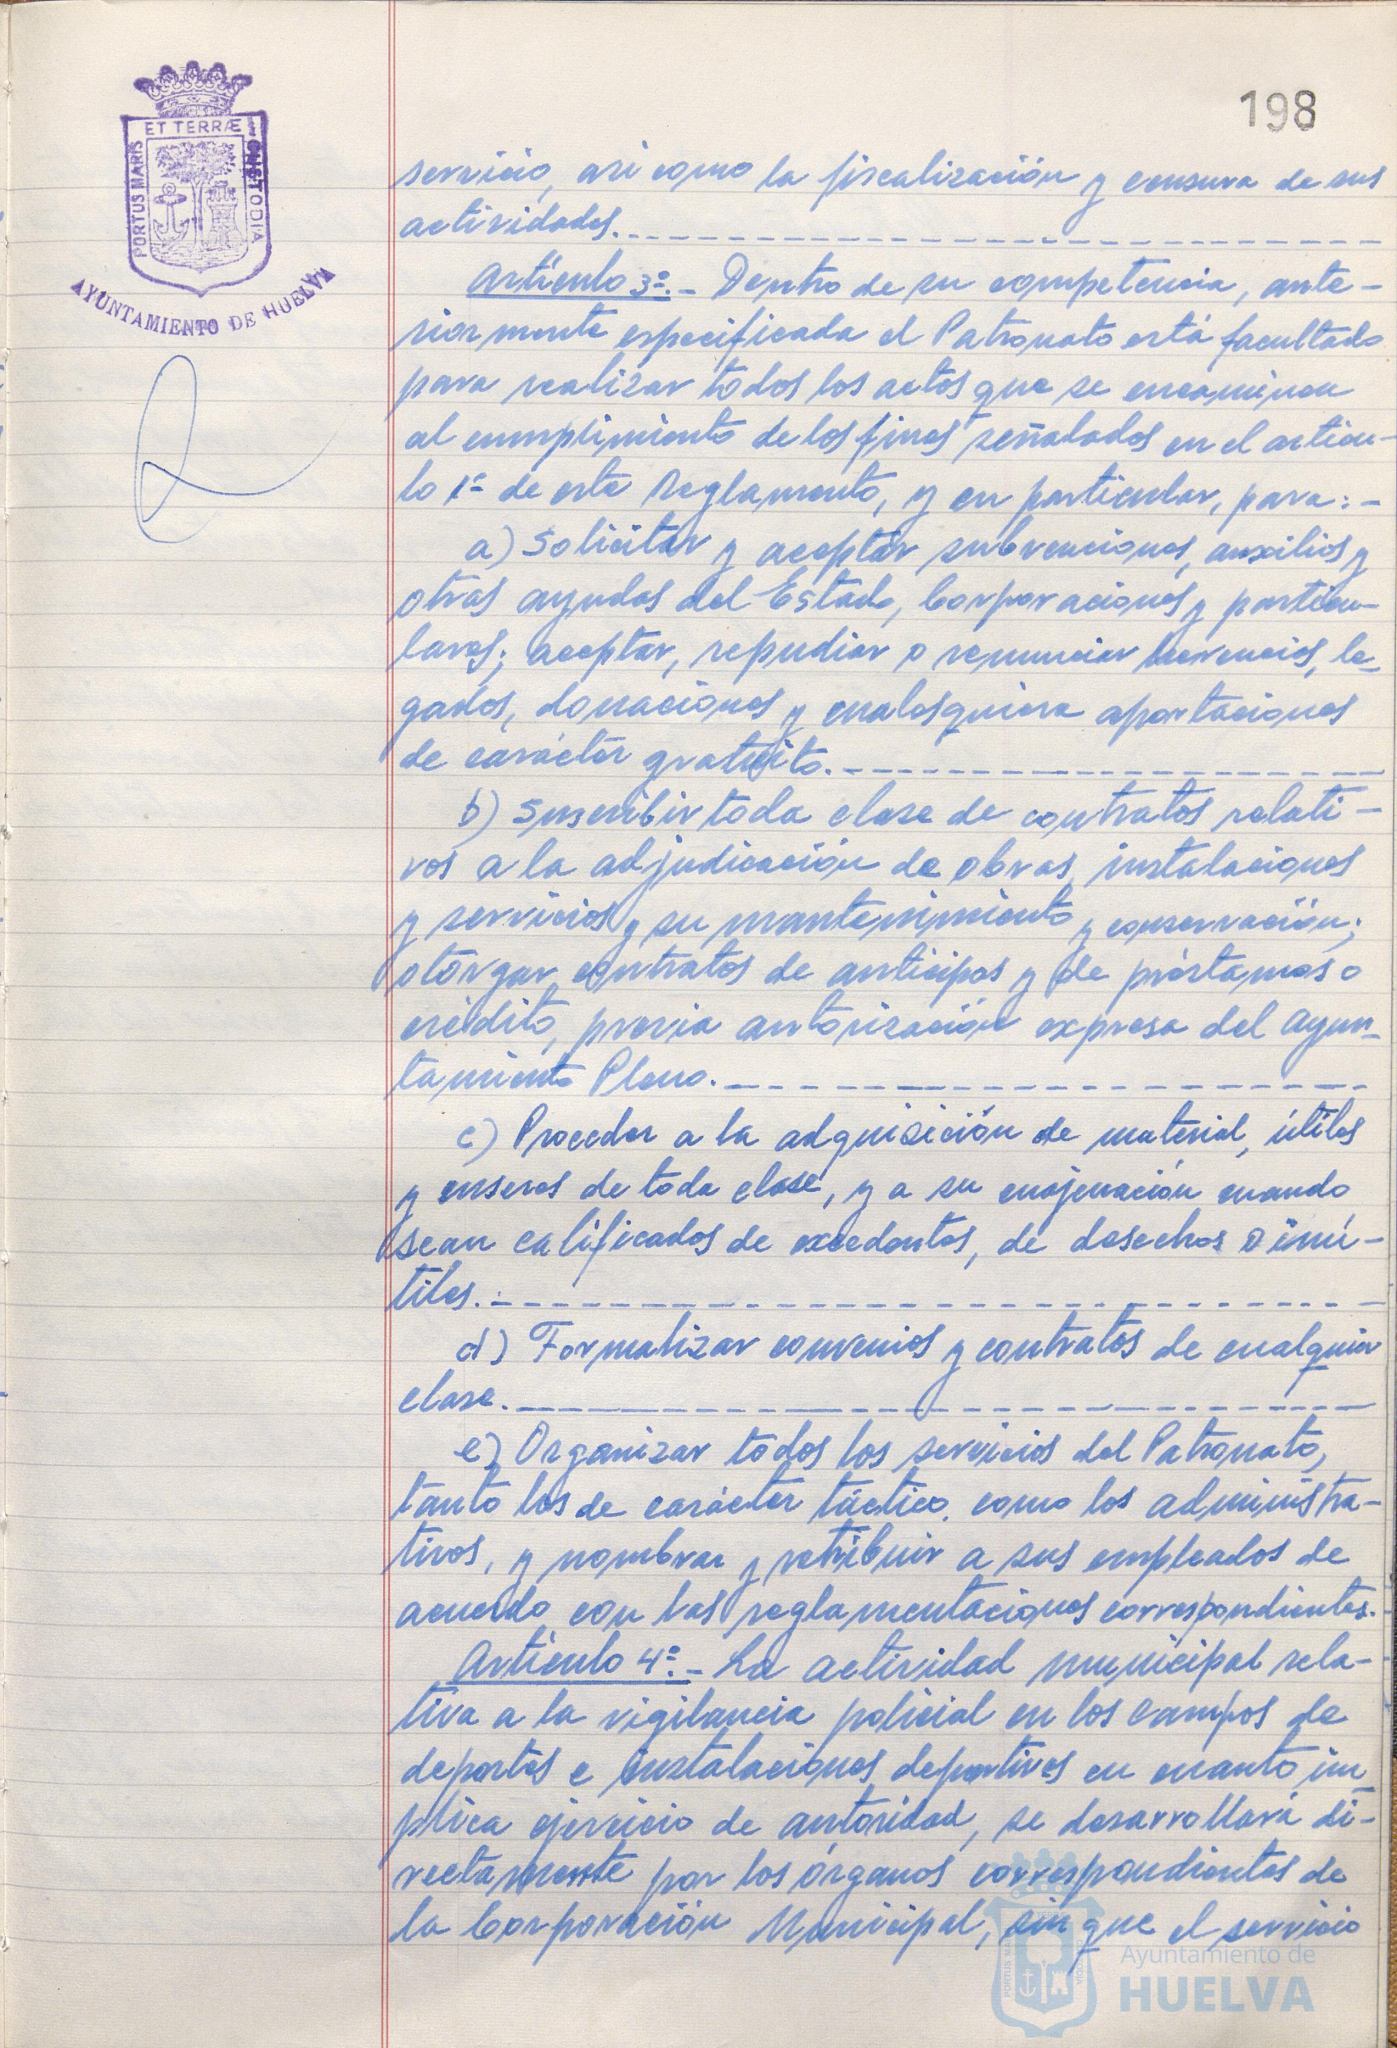 198
ET TERRÆ
PORTUS MARIS
CUSTODIA
AYUNTAMIENTO DE HUELVA
servicio, asi como la fiscalización y censura de sus
actividades.
Artículo 3º.- Dentro de su competencia, ante-
riormente especificada el Patronato está facultado
para realizar todos los actos que se encaminen
al cumplimiento de los fines señalados en el artícu-
lo 1º de este Reglamento, y en particular, para:-
a) Solicitar y aceptar subvenciones, auxilios y
otras ayudas del Estado, Corporaciones y particu-
lares; aceptar, repudiar o renunciar herencias, le-
gados, donaciones y cualesquiera aportaciones
de carácter gratuito.
b) Suscribir toda clase de contratos relati-
vos a la adjudicación de obras, instalaciones
y servicios y su mantenimiento y conservación;
otorgar contratos de anticipos y de préstamos o
crédito, previa autorización expresa del Ayun-
tamiento Pleno.
c) Proceder a la adquisición de material, útiles
y enseres de toda clase, y a su enajenación cuando
sean calificados de excedentes, de desechos o inú-
tiles.
d) Formalizar convenios y contratos de cualquier
clase.
e) Organizar todos los servicios del Patronato,
tanto los de carácter táctico, como los administra-
tivos, y nombrar y retribuir a sus empleados de
acuerdo con las reglamentaciones correspondientes.
Artículo 4º.- La actividad municipal rela-
tiva a la vigilancia policial en los campos de
deportes e instalaciones deportivas en cuanto im-
plica ejercicio de autoridad, se desarrollará di-
rectamente por los órganos correspondientes de
la Corporación Municipal, sin que el servicio
Ayuntamiento de
HUELVA